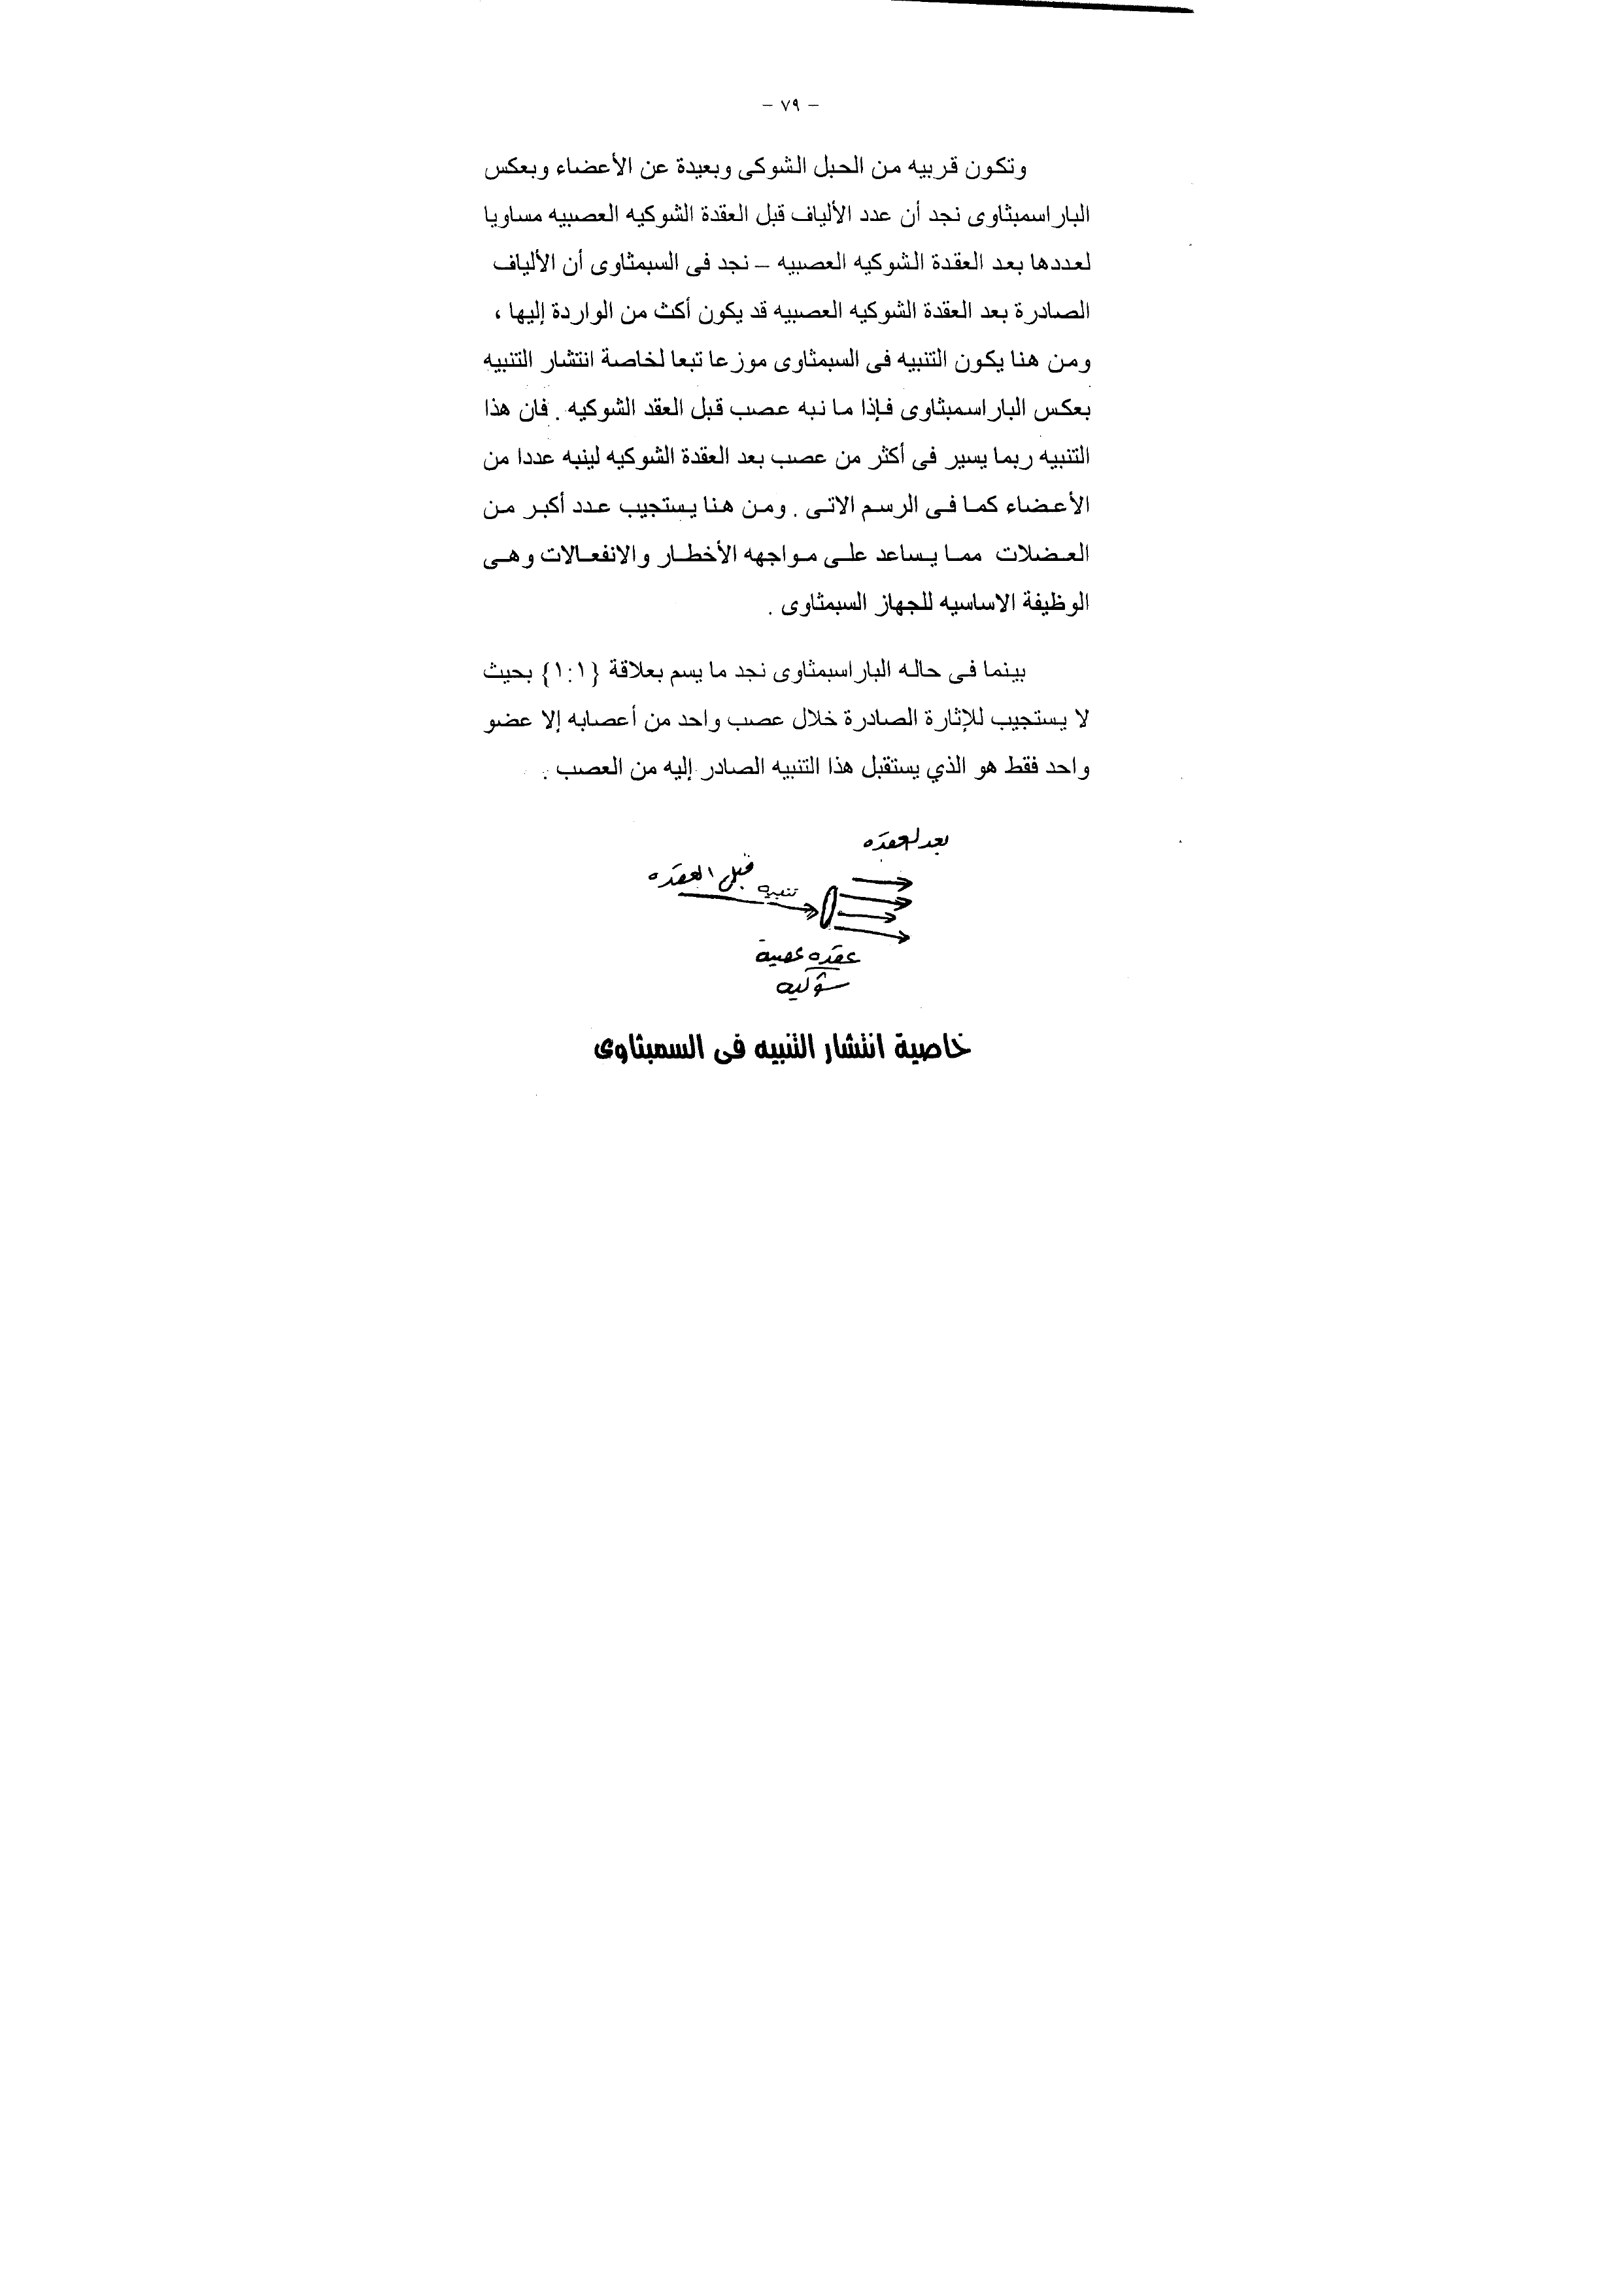 - ٧٩ -
وتكون قريبه من الحبل الشوكى وبعيدة عن الأعضاء وبعكس
الباراسمبثاوى نجد أن عدد الألياف قبل العقدة الشوكيه العصبيه مساويا
لعددها بعد العقدة الشوكيه العصبيه – نجد فى السبمثاوى أن الألياف
الصادرة بعد العقدة الشوكيه العصبيه قد يكون أكث من الواردة إليها ،
ومن هنا يكون التنبيه فى السبمثاوى موزعا تبعا لخاصة انتشار التنبيه
بعكس الباراسمبثاوى فإذا ما نبه عصب قبل العقد الشوكيه . فان هذا
التنبيه ربما يسير فى أكثر من عصب بعد العقدة الشوكيه لينبه عددا من
الأعضاء كما فى الرسم الاتى . ومن هنا يستجيب عدد أكبر من
العضلات مما يساعد على مواجهه الأخطار والانفعالات وهى
الوظيفة الاساسيه للجهاز السبمثاوى .
بينما فى حاله الباراسبمثاوى نجد ما يسم بعلاقة {١:١} بحيث
لا يستجيب للإثارة الصادرة خلال عصب واحد من أعصابه إلا عضو
واحد فقط هو الذي يستقبل هذا التنبيه الصادر إليه من العصب .
بعد العقده
قبل العقده
تنبيه
عقده عصبية
شوكيه
خاصية انتشار التنبيه فى السمبثاوى